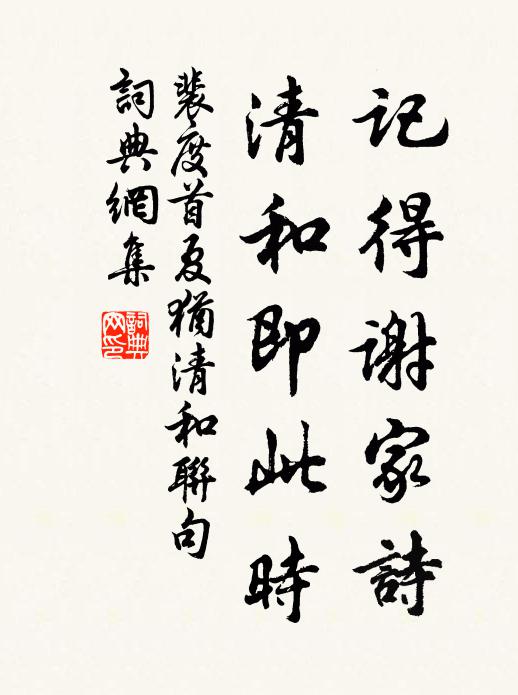 記得謝家詩
清和即此時
裴度首夏猶清和聯句
詞典網集
詞典網印